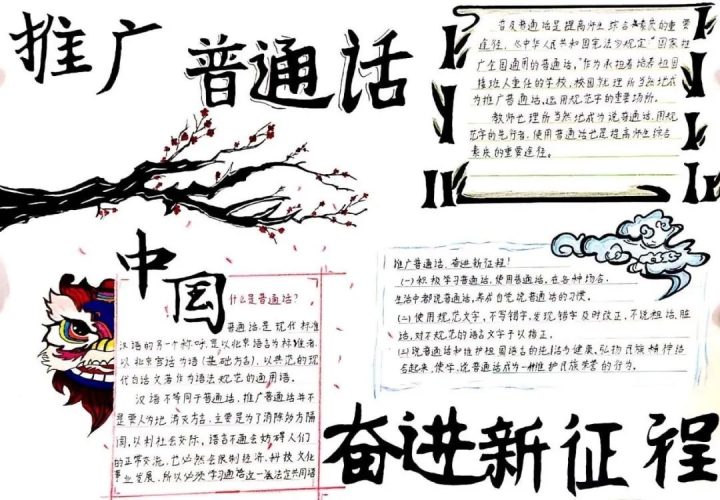 推广
普通话
普及普通话是提高师生综合素质的重要
途径，《中华人民共和国宪法》规定"国家推
广全国通用的普通话。"作为承担着培养祖国
接班人重任的学校，校园就理所当然地成
为推广普通话、运用规范字的重要场所。
教师也理所当然地成为说普通话、用规
范字的先行者，使用普通话也是提高师生综合
素质的重要途径。
中国
什么是普通话？
普通话是现代标准
汉语的另一个称呼，是以北京语音为标准音，
以北京官话为语（基础方言），以典范的现
代白话文著作为语法规范的通用语。
汉语不等同于普通话，推广普通话并不
是要人为地消灭方言，主要是为了消除方隔
阂，以利社会交际，语言不通会妨碍人们
的正常交流，也必然会限制经济、科技、文化
事业发展，所以必须学习通话这一法定共同语
推广普通话，奋进新征程！
(一)积极学习普通话，使用普通话，在各种场合、
生活中都说普通话，养成自觉说普通话的习惯。
(二)使用规范文字，不写错字，发现错字及时改正，不说粗话、脏
话，对不规范的语言文字予以指正。
(三)说普通话和维护祖国语言的纯洁与健康、弘扬民族精神结
合起来，使学、说普通话成为一种维护民族荣誉的行为。
奋进新征程